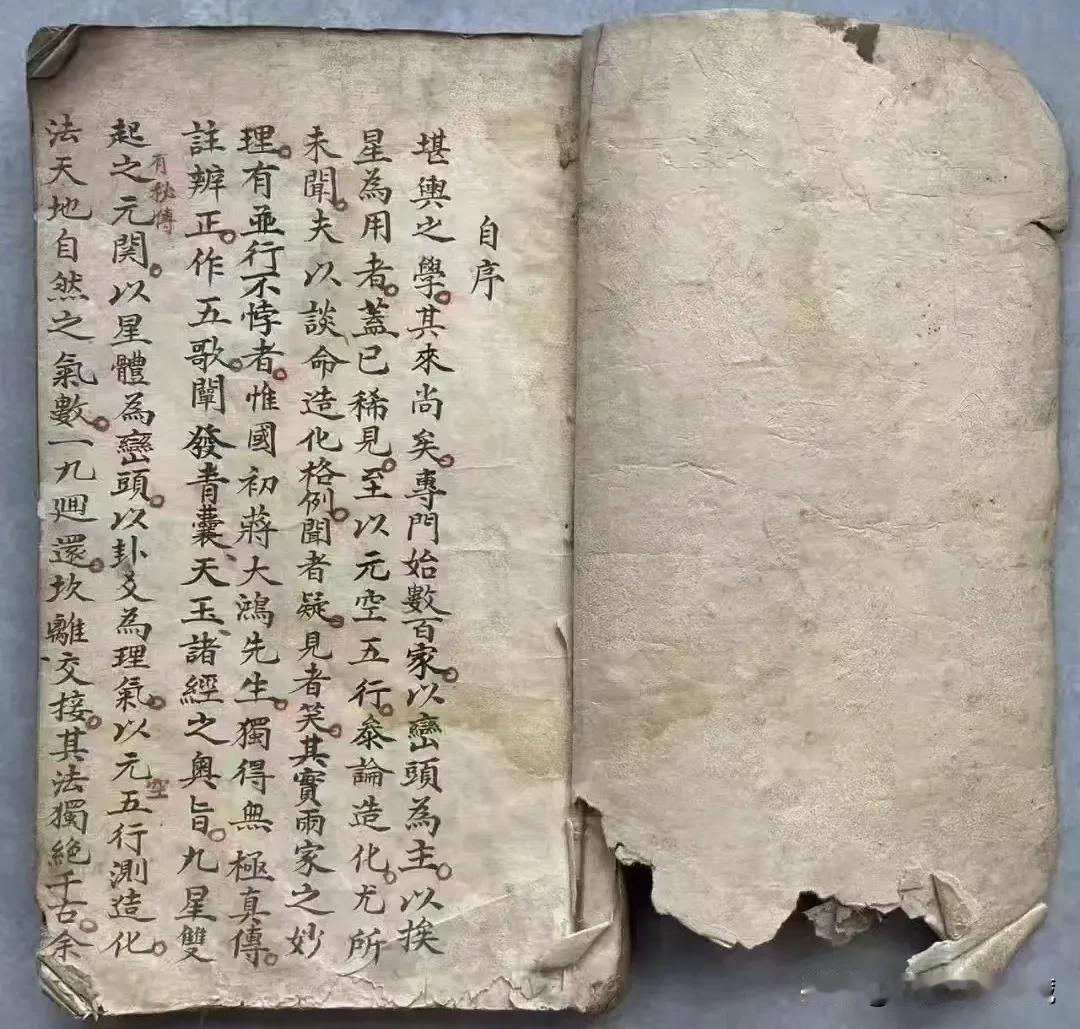 自序
堪輿之學。其來尚矣。專門始數百家。以巒頭為主。以挨
星為用者。蓋已稀見。至以元空五行。叅論造化。尤所
未聞。夫以談命造化格例。聞者疑。見者笑。其實兩家之妙
理。有並行不悖者。惟國初蔣大鴻先生。獨得無極真傳。
註辨正。作五歌。闡發青囊、天玉、諸經之奧旨。九星雙
起之元関。以星體為巒頭。以卦爻為理氣。以元五行測造化。
有秘傳
空
法天地自然之氣數。一九迴還。坎離交接。其法獨絕千古。余